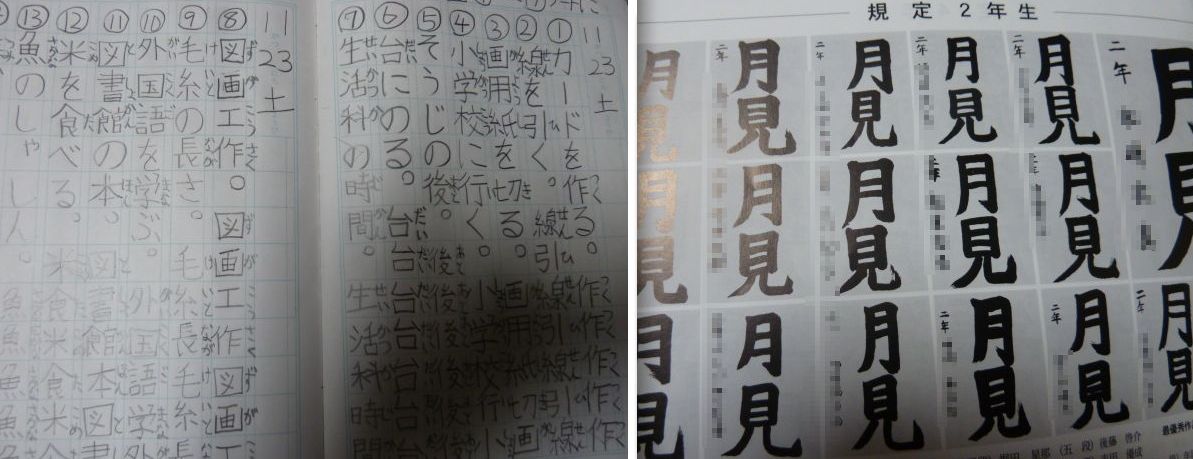 11 23 土
①カードを作る。作作作作作
②線を引く。線引線引線引線
③画用紙を切る。画用紙切画
④小学校に行く。小学校行小
⑤そうじの後。後後後後後後
⑥台にのる。台台台台台台
⑦生活科の時間。生活科時間
11 23 土
⑧図画工作。図画工作図画工
⑨毛糸の長さ。毛糸長毛糸長
⑩外国語を学ぶ。外国語学外
⑪図書館の本。図書館本図書
⑫米を食べる。米食米食米食
⑬魚のしゃしん。魚魚魚魚
規定2年生
二年 月見
二年 月見
二年 月見
二年 月見
二年 月見
月見
月見
二年 月見
月見
月見
月見
二年 月見
二年 月見
二年 月見
月見
月見
月見
最優秀作
(五 段) 後藤 啓介